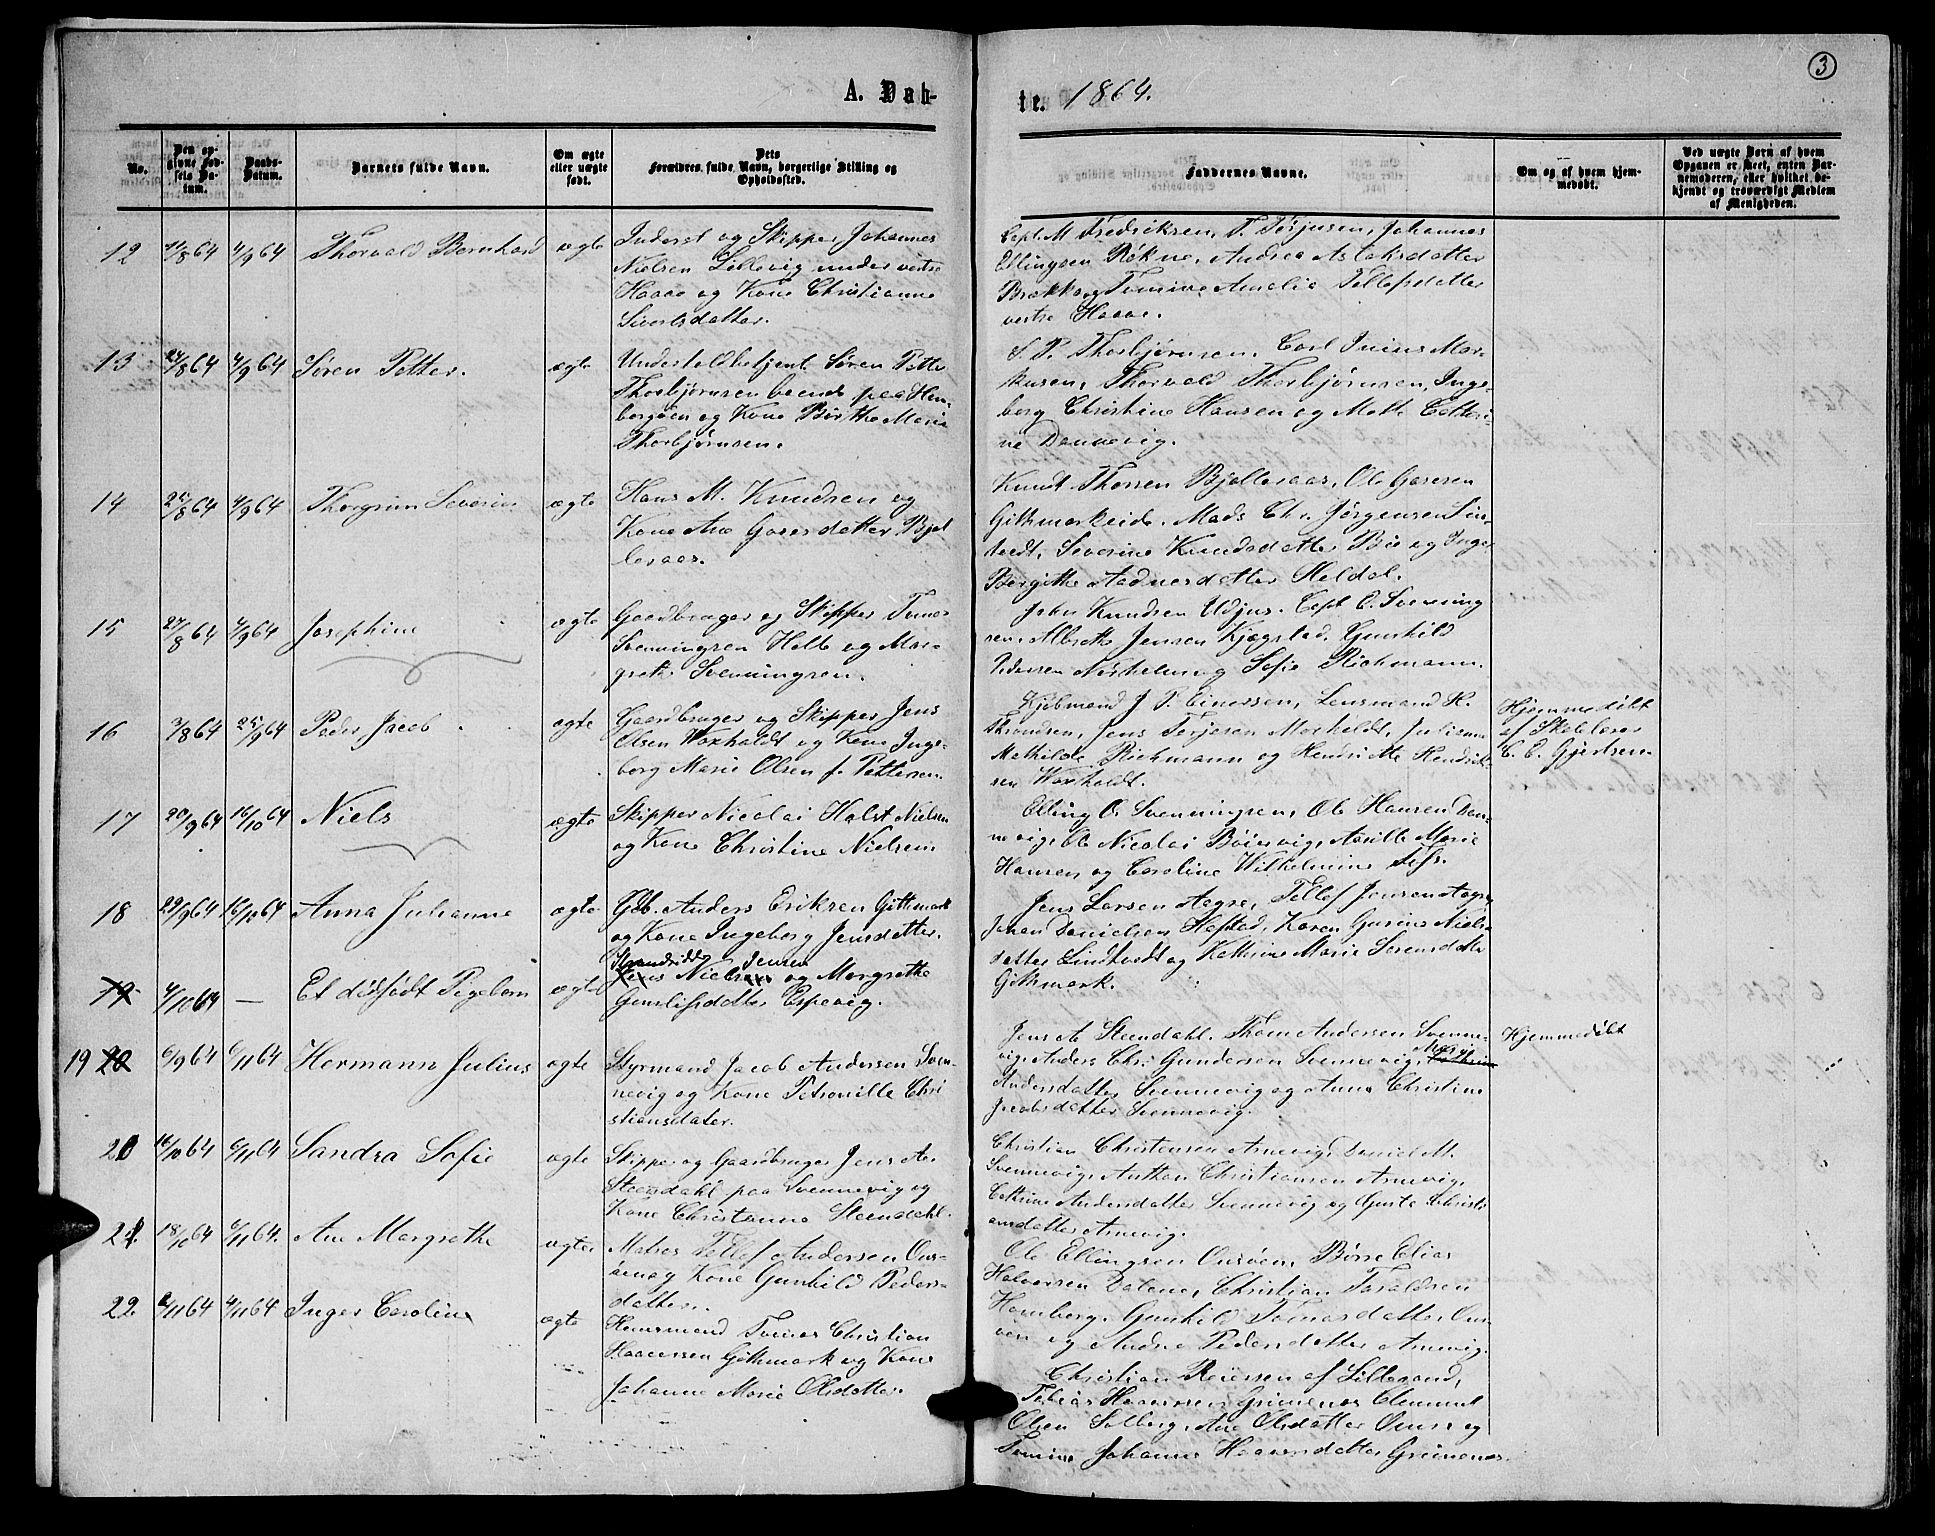 3
A. Dåb-
te. 1864.
No.
Den op-
givne Fød-
sels Da-
tum.
Daabs-
Datum.
Barnets fulde Navn.
Om ægte
eller uægte
født.
Dets
Forældres fulde Navn, borgerlige Stilling og
Opholdssted.
Faddernes Navne.
Om og af hvem hjem-
medøbt.
Ved uægte Børn af hvem
Opgaven er skeet, enten Bar-
nemoderen, eller hvilket be-
kjendt og troværdigt Medlem
af Menigheden.
12 11/8 64 4/9 64 Thorvald Bernhard ægte
Inderst og Skipper Johannes
Nielsen Lillevig under vestre
Haave og Kone Christianne
Sivertsdatter.
Capt. M Fredriksen, T. Terjusen, Johannes
Ellingsen Røkne, Andrea Aslaksdatter
Brække og Tomine Amalia Tellefsdatter
vestre Haave.
13 24/8 64 4/9 64 Søren Petter. ægte
Undertoldbetjent Søren Petter
Thorbjørnsen boende paa Hom-
borgøen og Kone Birthe Marie
Thorbjørnsen.
S. P. Thorbjørnsen, Carl Juius Mar-
kusen, Thorvald Thorbjørnsen, Inge-
borg Christine Hansen og Mette Cathri-
ne Dannevig.
14 25/8 64 4/9 64 Thorgrim Severin ægte
Hans M. Knudsen og
Kone Ane Goversdatter Bjel-
lesaas.
Knud Thorsen Bjellesaas, Ole Goversen
Githmarkeide, Mads Chr. Jørgensen Lin-
tvedt, Severine Knudsdatter Bie og Inger
Bergithe Aadnesdatter Heldal.
15 27/8 64 4/9 64 Josephine ægte
Gaardbruger og Skipper Tomas
Svenningsen Holte og Mar-
grethe Svenningsen.
John Knudsen Udjus, Capt. E. Svenning
sen, Albreth Jensen Kjøgstad, Gunhild
Pedersen Nørholm og Sofie Richmann.
16 3/8 64 25/9 64 Peder Jacob. ægte
Gaardbruger og Skipper Jens
Olsen Woxholdt og Kone Inge-
borg Marie Olsen f. Pettersen.
Kjøbmand J. P. Einersen, Lensmand K.
Throndsen, Jens Terjesen Moxholdt, Julianne
Mathilde Richmann og Hendrikke Hendrik-
sen Woxholdt.
Hjemmedøbt
af Skolelærer
E. E. Gjertsen
17 20/9 64 16/10 64 Niels ægte
Skipper Nicolai Holst Nielsen
og Kone Christine Nielsen.
Elling O. Svenningsen, Ole Hansen Dan-
nevig, Ole Nicolai Bøievig, Aasille Marie
Hansen og Caroline Wilhelmine
18 29/9 64 16/10 64 Anna Julianne ægte
Gdb. Anders Eriksen Githmark
og Kone Ingeborg Jensdatter.
Jens Larsen Aagre, Tellef Jensen Aagre,
Johan Danielsen Heftad, Karen Gurine Niels-
datter Lindtvedt og Kathrine Marie Sørensdatter
Githmark.
19 4/10 64 — Et dødfødt Pigebarn ægte
Jensen
Jens Nielsen og Margrethe
Gunulfsdatter Espevig.
19 20 6/9 64 6/11 64 Hermann Julius ægte
Styrmand Jacob Andersen Sven-
nevig og Kone Petronille Chri
stiansdatter.
Jens A. Steendahl, Thom Andersen Svenne-
vig, Anders Chr. Gundersen Svennevig, Marie
Andersdatter Svennevig og Anne Christine
Jacobsdatter Svennevig.
Hjemmedøbt
20 16/10 64 6/11 64 Sandra Sofie ægte
Skipper og Gaardbruger Jens A.
Steendahl paa Svennevig og
Kone Christianne Steendahl.
Christian Christensen Arnevig, Daniel M.
Svennevig, Anthon Christiansen Arnevig,
Cathrine Andersdatter Svennevig og Gusta Christi
ansdatter Arnevig.
21 18/10 64 6/11 64. Ane Margrethe ægte
Matros Tellef Andersen Ous-
øen og Kone Gunhild Peders-
datter.
Ole Ellingsen Ousøen, Børre Elias
Halversen Dalene, Christian Taraldsen
Homborg, Gunhild Tomasdatter Ous-
øen og Andrea Pedersdatter Arnevig.
22. 2/11 64 4/11 64 Inger Caroline ægte
Huusmand Tomas Christian
Haaversen Githmark og Kone
Johanne Marie Olsdatter.
Christian Reiersen af Lillesand,
Tobias Haaversen Grimenes, Clemmet
Olsen Solberg, Ane Olsdatter og
Tomine Johanne Haaversdatter Grimenes.